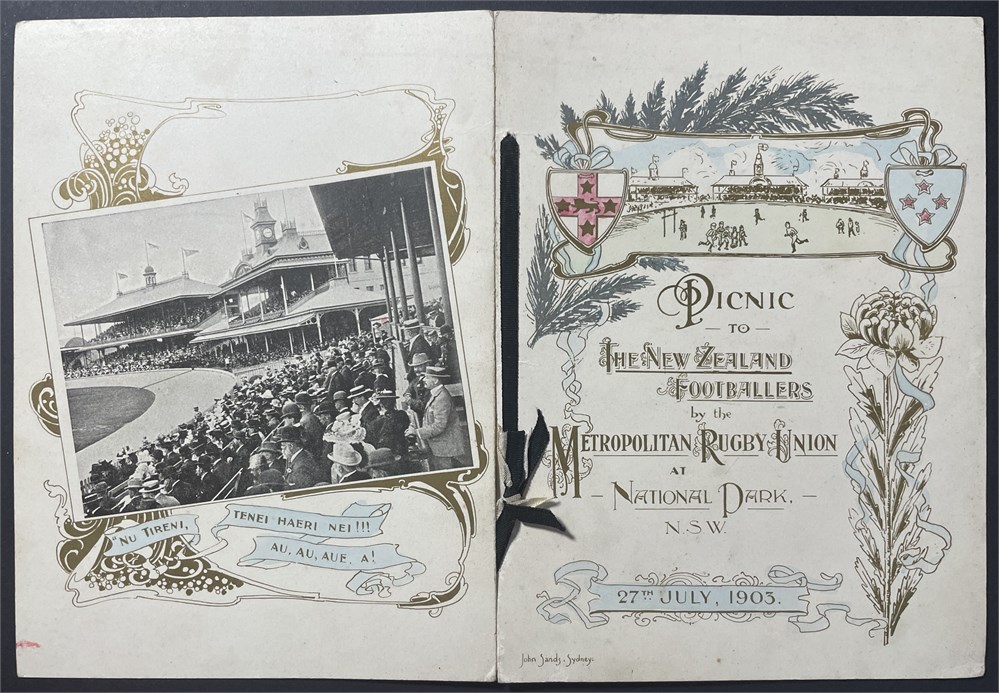 "NU TIRENI,
TENEI HAERI NEI!!!
AU, AU, AUE, A!
PICNIC
— TO —
THE NEW ZEALAND
FOOTBALLERS
by the
METROPOLITAN RUGBY UNION
AT
— NATIONAL PARK. —
N.S.W.
27TH JULY, 1903.
John Sands, Sydney.